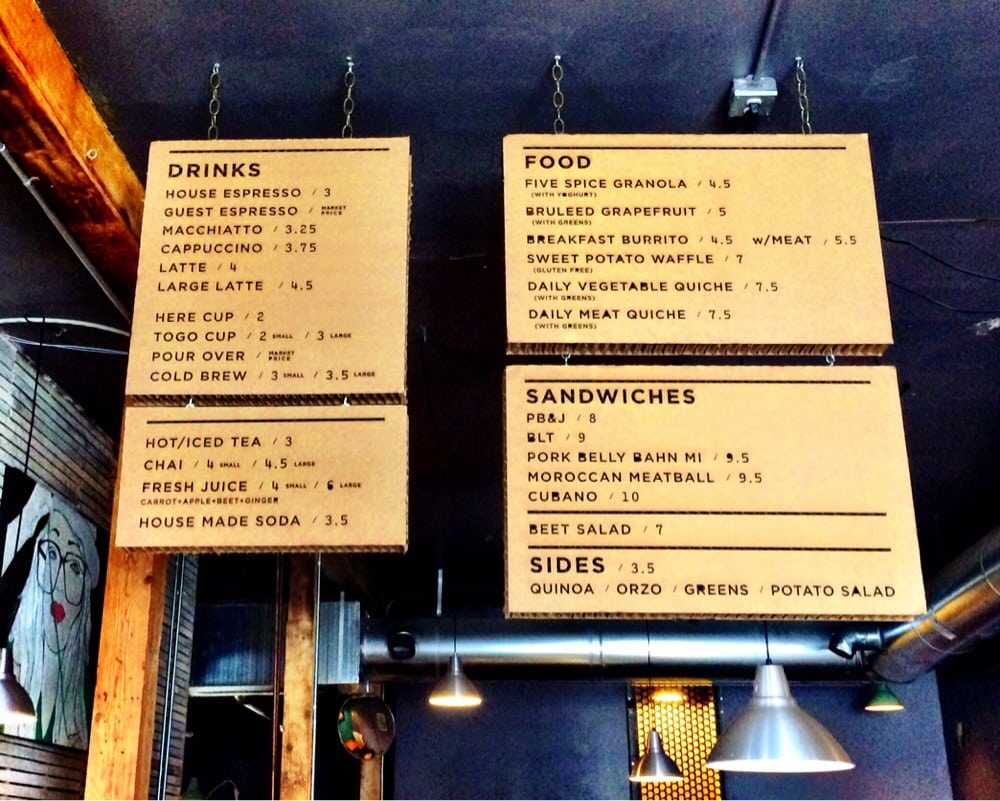 DRINKS
HOUSE ESPRESSO / 3
GUEST ESPRESSO / MARKET PRICE
MACCHIATTO / 3.25
CAPPUCCINO / 3.75
LATTE / 4
LARGE LATTE / 4.5
HERE CUP / 2
TOGO CUP / 2 SMALL / 3 LARGE
POUR OVER / MARKET PRICE
COLD BREW / 3 SMALL / 3.5 LARGE
HOT/ICED TEA / 3
CHAI / 4 SMALL / 4.5 LARGE
FRESH JUICE / 4 SMALL / 6 LARGE
CARROT+APPLE+BEET+GINGER
HOUSE MADE SODA / 3.5
FOOD
FIVE SPICE GRANOLA / 4.5
(WITH YOGHURT)
BRULEED GRAPEFRUIT / 5
(WITH GREENS)
BREAKFAST BURRITO / 4.5 W/MEAT / 5.5
SWEET POTATO WAFFLE / 7
(GLUTEN FREE)
DAILY VEGETABLE QUICHE / 7.5
(WITH GREENS)
DAILY MEAT QUICHE / 7.5
(WITH GREENS)
SANDWICHES
PB&J / 8
BLT / 9
PORK BELLY BAHN MI / 9.5
MOROCCAN MEATBALL / 9.5
CUBANO / 10
BEET SALAD / 7
SIDES / 3.5
QUINOA / ORZO / GREENS / POTATO SALAD